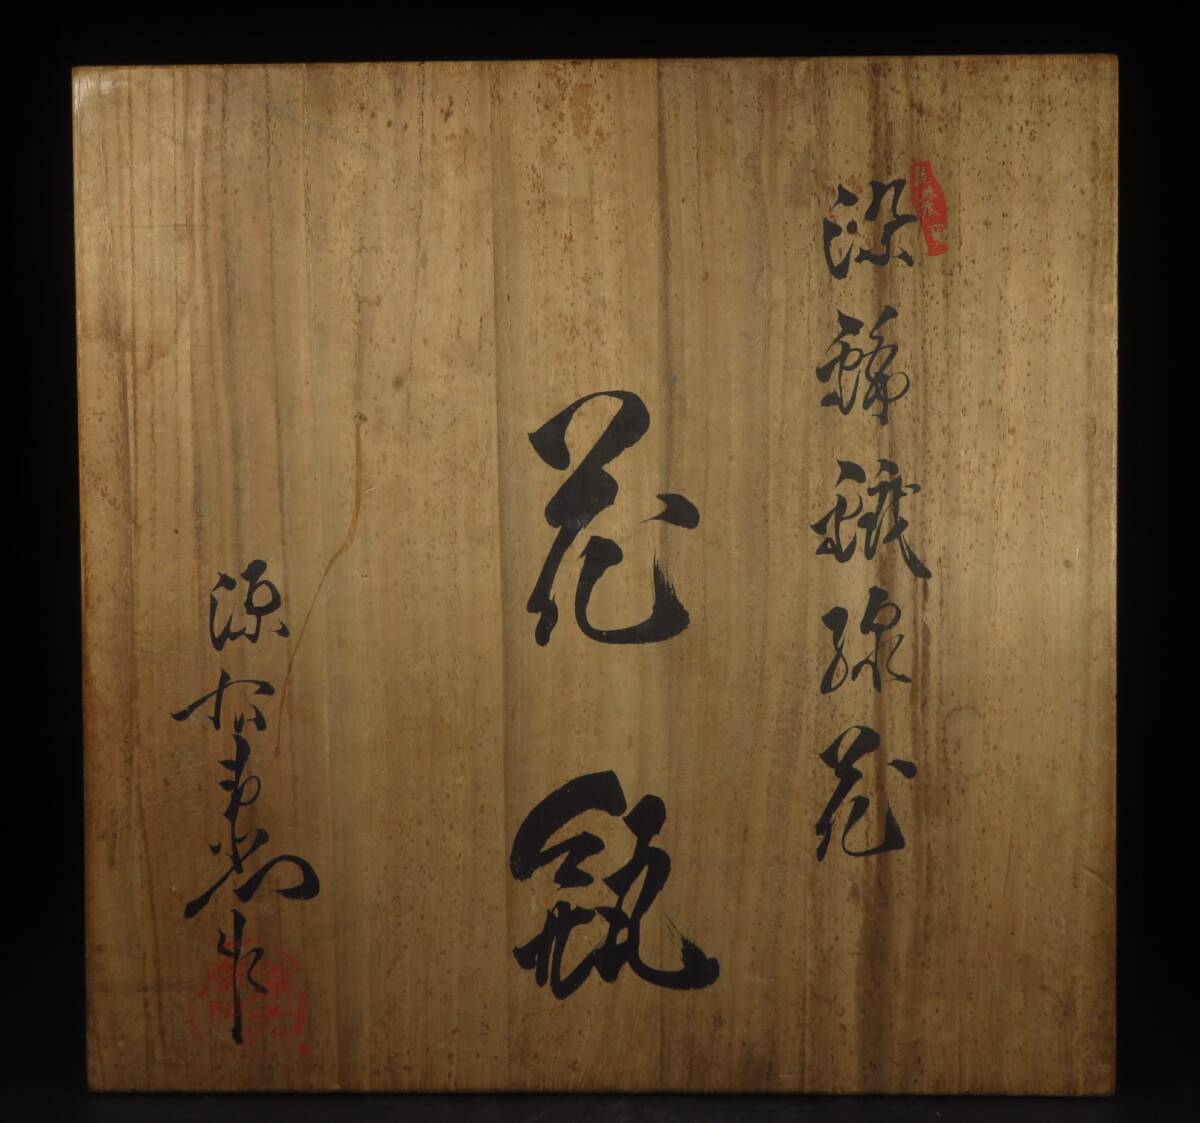 染錦鉄線花
花瓶
源右衛門作